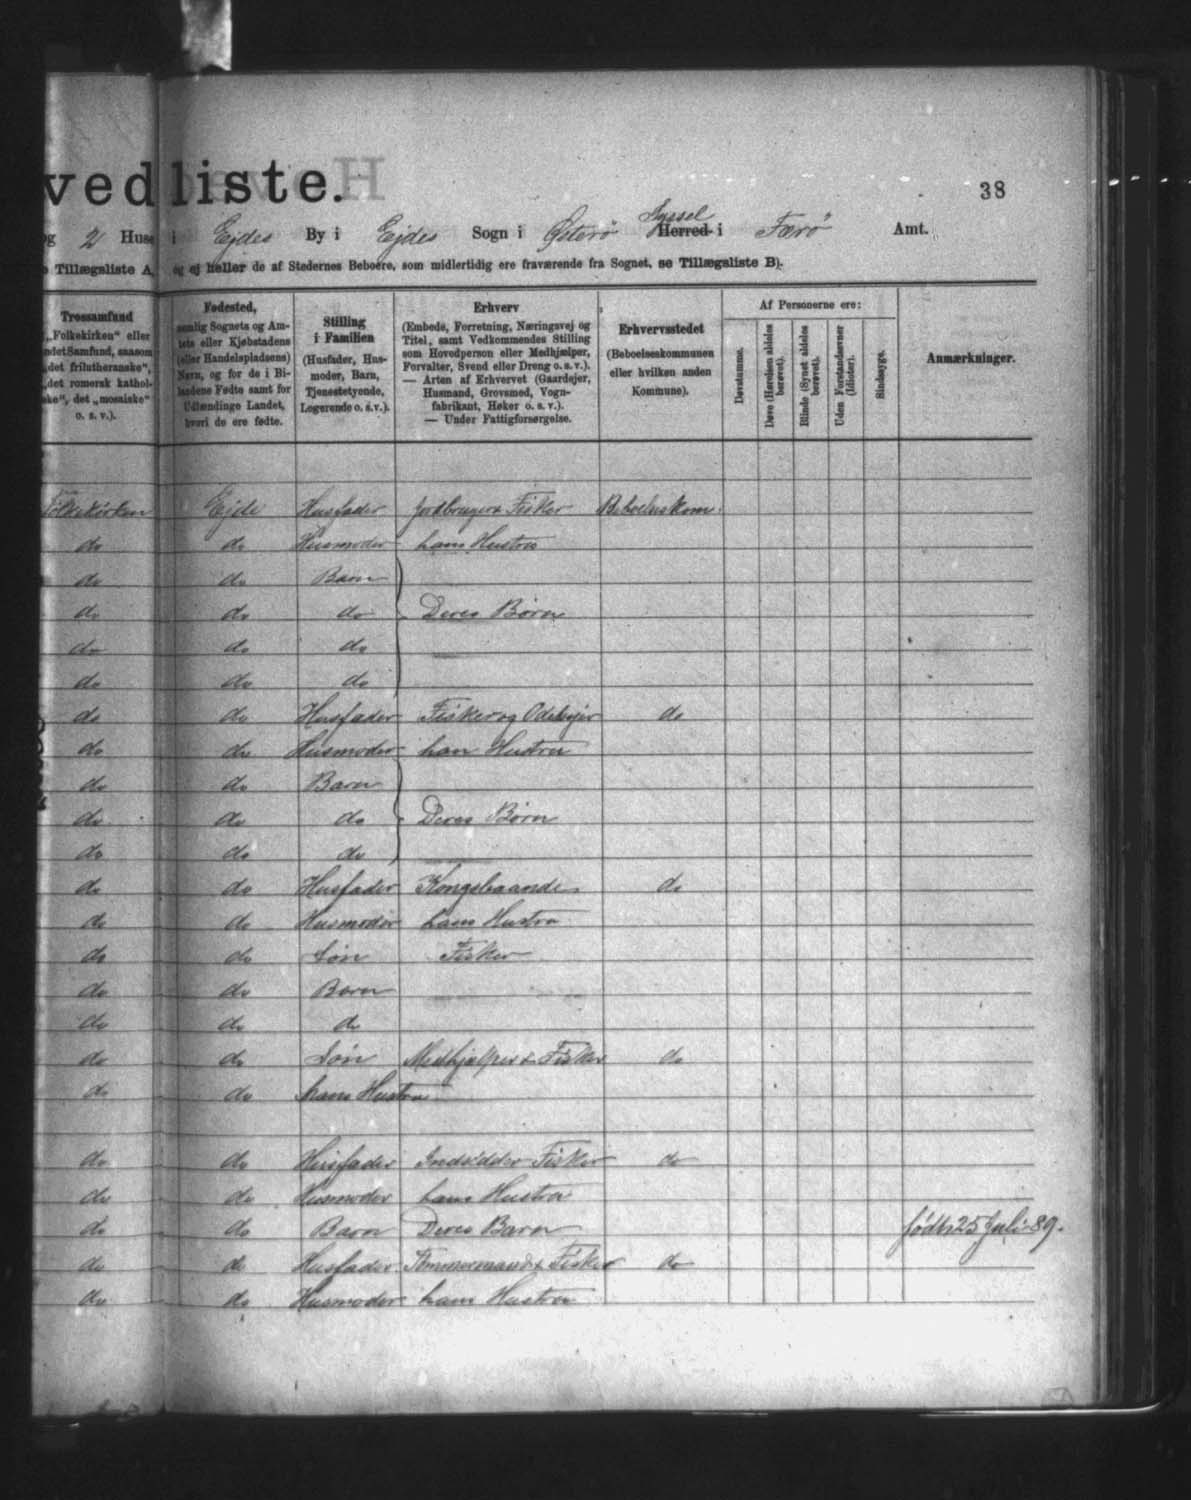 vedliste.
38
og 2 Huse i Ejdes By i Ejdes Sogn i Østerø Syssel Herred i Færø Amt.
Tillægsliste A, og ej heller de af Stedernes Beboere, som midlertidig ere fraværende fra Sognet, se Tillægsliste B).
Trossamfund
„Folkekirken“ eller
andet Samfund, saasom
„det frilutheranske“,
„det romersk kathol-
ske“, det „mosaiske“
o. s. v.).
Fødested,
nemlig Sognets og Am-
tets eller Kjøbstadens
(eller Handelspladsens)
Navn, og for de i Bi-
landene Fødte samt for
Udlændinge Landet,
hvori de ere fødte.
Stilling
i Familien
(Husfader, Hus-
moder, Barn,
Tjenestetyende,
Logerende o. s. v.).
Erhverv
(Embede, Forretning, Næringsvej og
Titel, samt Vedkommendes Stilling
som Hovedperson eller Medhjælper,
Forvalter, Svend eller Dreng o. s. v.).
— Arten af Erhvervet (Gaardejer,
Husmand, Grovsmed, Vogn-
fabrikant, Høker o. s. v.).
— Under Fattigforsørgelse.
Erhvervsstedet
(Beboelseskommunen
eller hvilken anden
Kommune).
Af Personerne ere:
Døvstumme.
Døve (Hørelsen aldeles berøvet).
Blinde (Synet aldeles berøvet).
Uden Forstandsevner (Idioter).
Sindssyge.
Anmærkninger.
Folkekirken Ejde Husfader Jordbruger & Fisker Beboelseskom.
do do Husmoder hans Hustru
do do Barn
do do do Deres Børn
do do do
do do do
do do Husfader Fisker og do
do do Husmoder hans Hustru
do do Barn
do do do Deres Børn
do do do
do do Husfader Kongsbaande do
do do Husmoder hans Hustru
do do Søn Fisker
do do Barn
do do do
do do Søn Medhjælper & Fisker do
do do hans Hustru
do do Husfader Indsidder Fisker do
do do Husmoder hans Hustru
do do Barn Deres Barn født 25 Juli 89.
do do Husfader Tømmermand & Fisker do
do do Husmoder hans Hustru